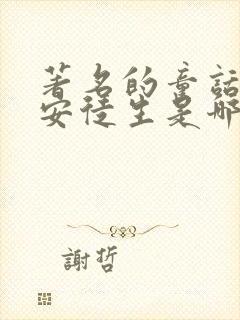 著名的童話
安徒生是哪
謝哲